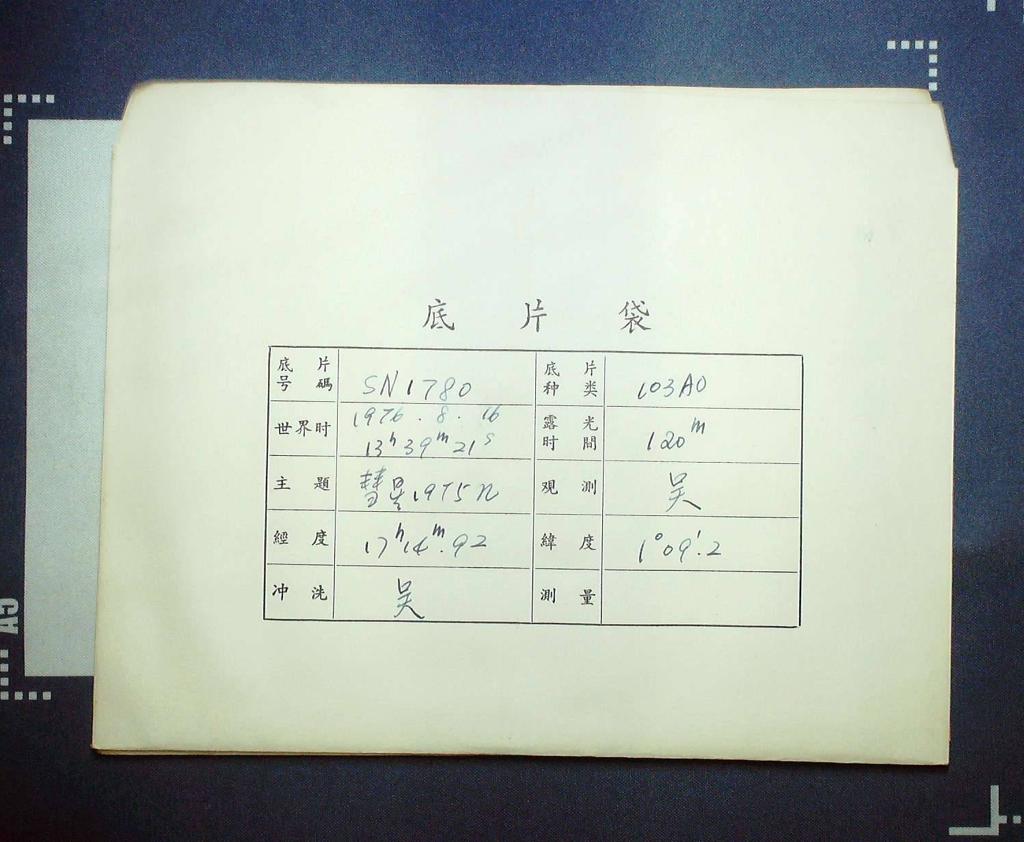 底 片 袋
底 片 号 碼 SN1780 底 片 种 类 103A0
世界时 1976.8.16 13h39m21s 露 光 时 間 120m
主 題 彗星1975n 观 测 吴
經 度 17h14m.92 緯 度 1°09′.2
冲 洗 吴 测 量
A5